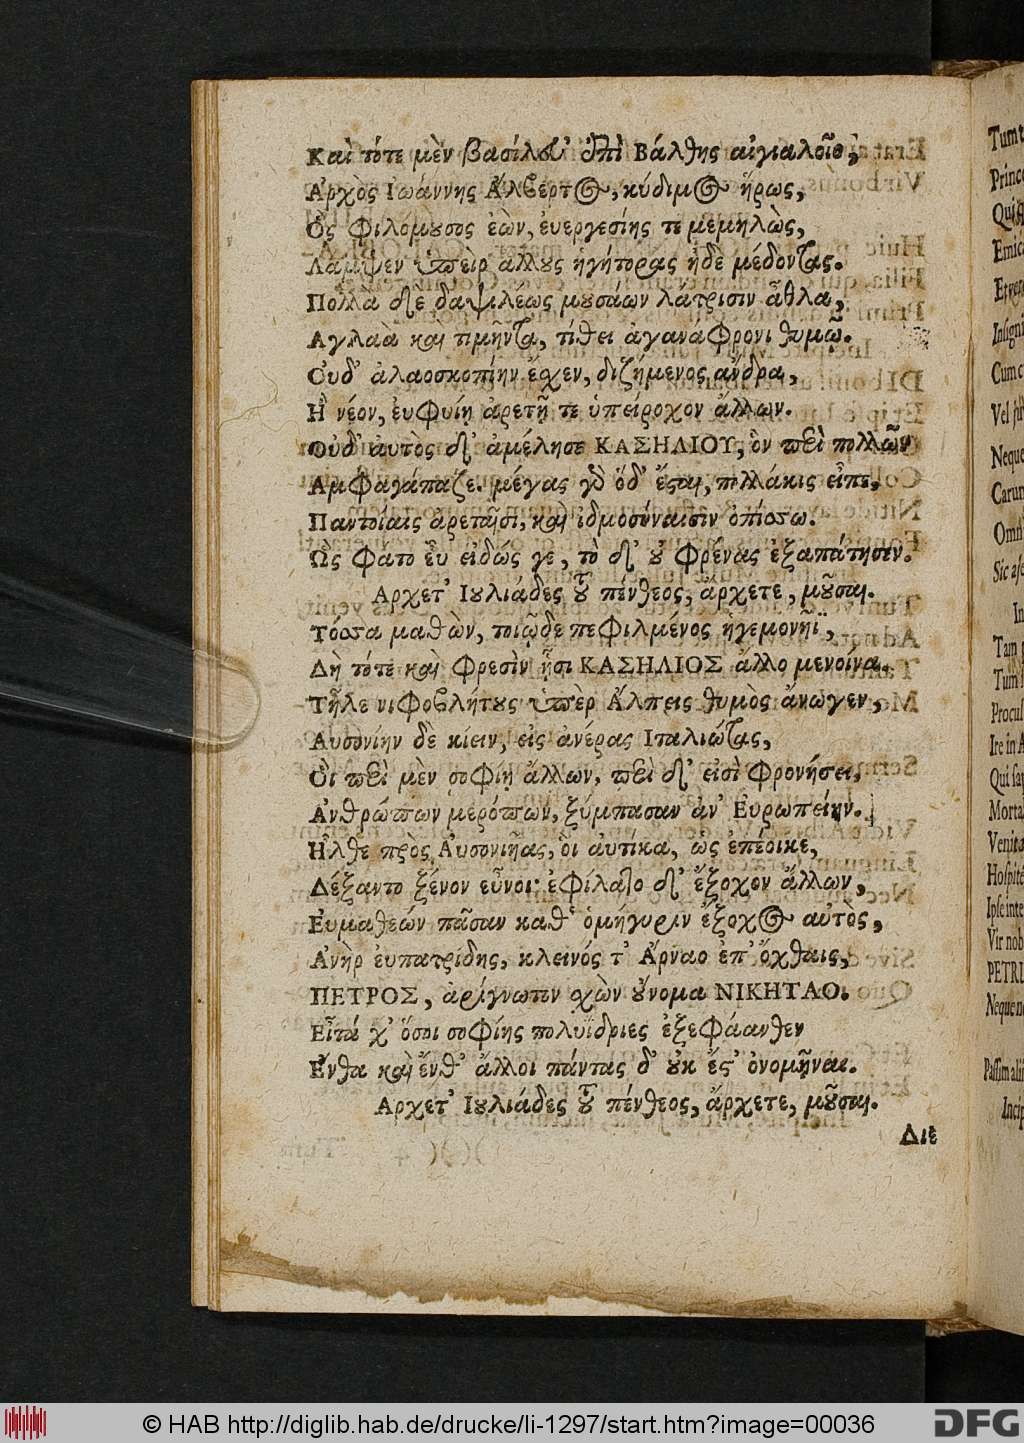 Καὶ τότε μὲν βασίλευ' ἐπὶ Βάλθης αἰγιαλοῖο,
Ἀρχὸς Ἰωάννης Ἄλβερτος, κύδιμος ἥρως,
Ὃς φιλόμουσος ἐὼν, ἐυεργεσίης τε μεμηλὼς,
Λάμψεν ὑπεὶρ ἄλλους ἡγήτορας ἠδὲ μέδοντας.
Πολλὰ δὲ δαψιλέως μουσάων λάτρισιν ἆθλα,
Ἀγλαὰ καὶ τιμῆντα, τίθει ἀγανάφρονι θυμῷ.
Οὐδ' ἀλαοσκοπίην ἔχεν, διζήμενος ἄνδρα,
Ἢ νέον, ἐυφυίῃ ἀρετῇ τε ὑπείροχον ἄλλων.
Οὐδ' ἀυτὸς δ' ἀμέλησε ΚΑΣΗΛΙΟΥ, ὃν περὶ πολλῶν
Ἀμφαγάπαζε. μέγας γὰρ ὅδ' ἔσαι, πολλάκις εἶπε,
Παντοίαις ἀρεταῖσι, καὶ ἰδμοσύναισιν ὀπίσσω.
Ὣς φάτο ἐῦ εἰδώς γε, τὸ δ' οὐ φρένας ἐξαπάτησεν.
Ἄρχετ' Ἰουλιάδες τοῦ πένθεος, ἄρχετε, μοῦσαι.
Τόσσα μαθὼν, τοιῷδε πεφιλμένος ἡγεμονῆϊ,
Δὴ τότε καὶ φρεσὶν ᾗσι ΚΑΣΗΛΙΟΣ ἄλλο μενοίνα.
Τῆλε νιφοβλήτους ὑπὲρ Ἄλπεις θυμὸς ἄνωγεν,
Αυσονίην δὲ κίειν, εἰς ἀνέρας Ἰταλιώτας,
Οἳ περὶ μὲν σοφίῃ ἄλλων, περὶ δ' εἰσὶ φρονήσει,
Ἀνθρώπων μερόπων, ξύμπασαν ἀν' Ἐυρωπείην.
Ἦλθε πρὸς Ἀυσονιῆας, οἳ αὐτίκα, ὡς ἐπέοικε,
Δέξαντο ξένον εὖνοι· ἐφίλατο δ' ἔξοχον ἄλλων,
Ευμαθεών πᾶσαν καθ' ὁμήγυριν ἔξοχος αὐτὸς,
Ἀνὴρ ἐυπατρίδης, κλεινός τ' Ἄρναο ἐπ' ὄχθαις,
ΠΕΤΡΟΣ, ἀρίγνωτον σχὼν οὔνομα ΝΙΚΗΤΑΟ.
Εἶτά χ' ὅσοι σοφίης πολυΐδριες ἐξεφάανθεν
Ἔνθα καὶ ἔνθ' ἄλλοι πάντας δ' οὐκ ἔστ' ὀνομῆναι.
Ἄρχετ' Ἰουλιάδες τοῦ πένθεος, ἄρχετε, μοῦσαι.
Διὲ
Tum
Princ
Emic
Insigni
Cum c
Neque
Carun
Omn
Sic
In
Tam
Tum
Procul
Ire in A
Qui sa
Morta
Venit
Hospit
Ipse inte
Vir nob
PETRI
Neque n
Passim alii
Incip
© HAB http://diglib.hab.de/drucke/li-1297/start.htm?image=00036
DFG